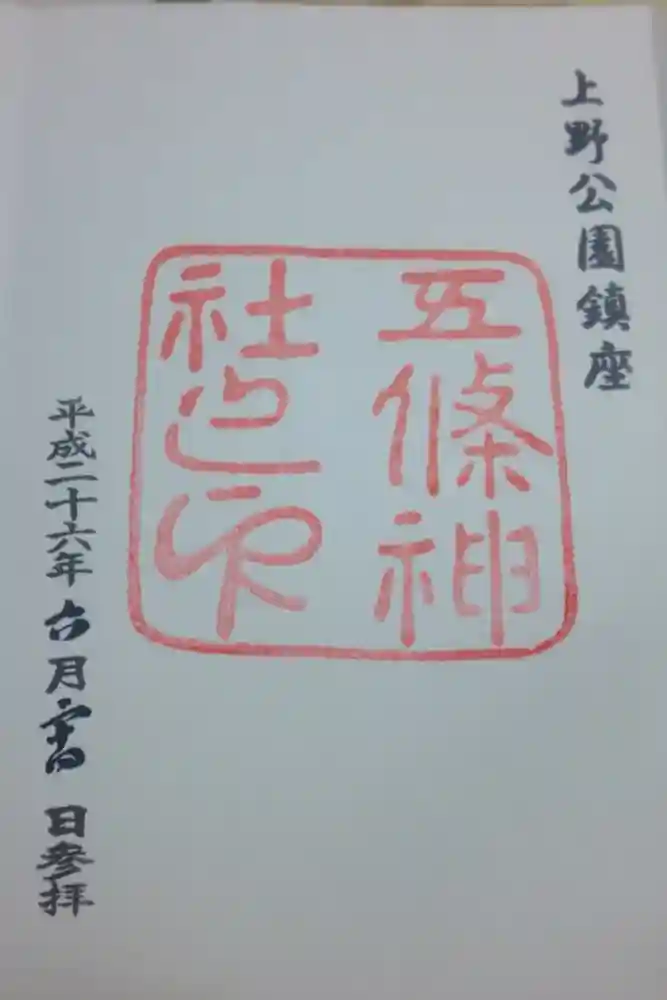 上野公園鎮座
五條神
社之印
平成二十六年六月二十四日参拝